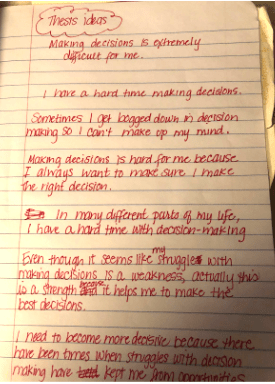 Thesis ideas
Making decisions is extremely
difficult for me.
I have a hard time making decisions.
Sometimes I get bogged down in decision
making so I can't make up my mind.
Making decisions is hard for me because
I always want to make sure I make
the right decision.
In many different parts of my life,
I have a hard time with decision-making
Even though it seems like my struggle with
making decisions is a weakness, actually this
is a strength because it helps me to make the
best decisions.
I need to become more decisive because there
have been times when struggles with decision
making have kept me from opportunities